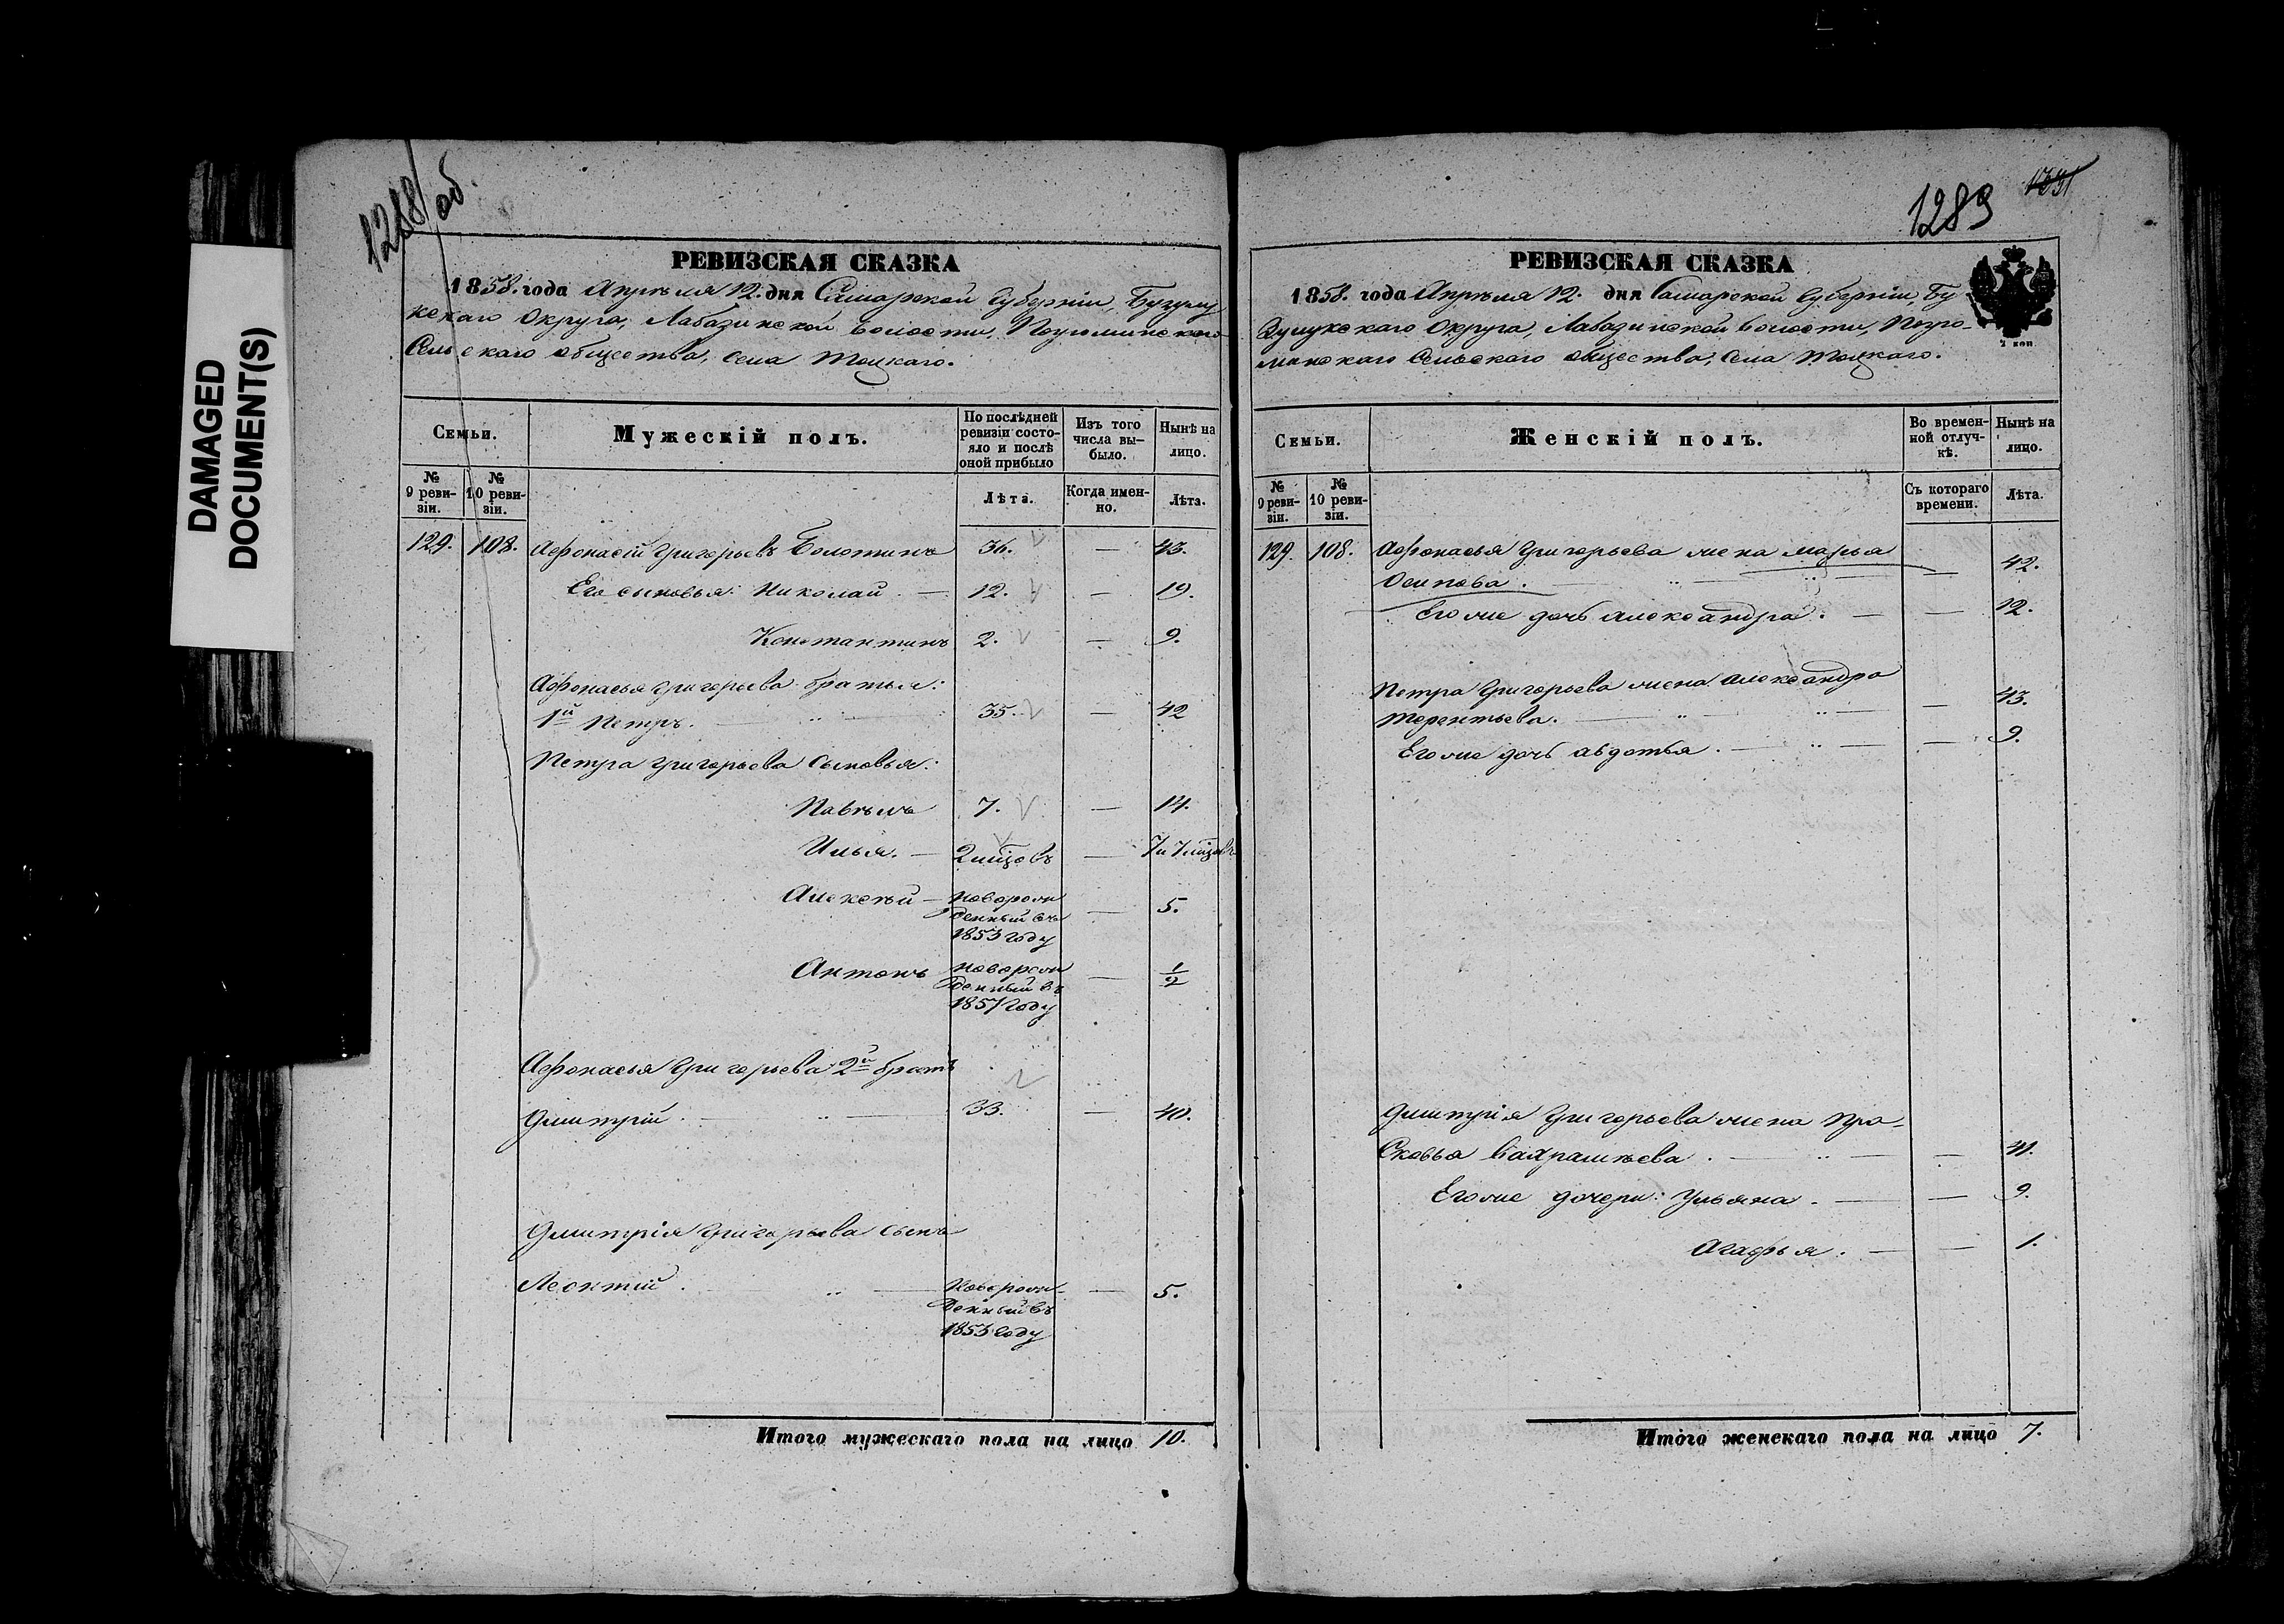 DAMAGED
DOCUMENT(S)
1288 об.
РЕВИЗСКАЯ СКАЗКА
1858. года Апрѣля 12. дня Самарской Губерніи, Бузулу
кскаго Округа, Лабазинской волости,
Сельскаго общества, Села Тоцкаго.
Семьи.
Мужескій полъ.
По послѣдней ревизіи состояло и послѣ оной прибыло
Изъ того числа выбыло.
Нынѣ на лицо.
№ 9 ревизіи.
№ 10 ревизіи.
Лѣта.
Когда именно.
Лѣта.
129. 108. Афонасій Григорьевъ Болотинъ 36. — 43.
Его сыновья: Николай. — 12. — 19.
Константинъ 2. — 9.
Афонасья Григорьева братья:
1й Петръ. 35. — 42
Петра Григорьева Сыновья:
Павѣлъ 7. — 14.
Илья. — 2 мѣцовъ — 7 и 7 мѣцовъ
Алексѣй — новорож
денный въ — 5.
1853 году
Антонъ новорож
денный въ — 1/2
1857 году
Афонасья Григорьева 2й братъ
Дмитрій. 33. — 40.
Дмитрія Григорьева сынъ
Леонтій. — Новорож-
денный въ — 5.
1853 году
Итого мужескаго пола на лицо 10.
1289
РЕВИЗСКАЯ СКАЗКА
1858. года Апрѣля 12. дня Самарской Губерніи, Бу
зулукскаго Округа, Лабазинской волости, Погро-
минскаго Сельскаго общества, Села Тоцкаго.
Семьи.
Женскій полъ.
Во временной отлучкѣ.
Нынѣ на лицо.
№ 9 ревизіи.
№ 10 ревизіи.
Съ котораго времени.
Лѣта.
129. 108. Афонасья Григорьева жена Марья
Осипова. — — 42.
Его же дочь Александра. — — 12.
Петра Григорьева жена Александра
Терентьева. — — 43.
Его же дочь Авдотья. — — 9.
Дмитрія Григорьева жена Пра-
сковья Вахрамѣева. — — 41.
Его же дочери: Ульяна. — — 9.
Агафья. — — 1.
Итого женскаго пола на лицо 7.